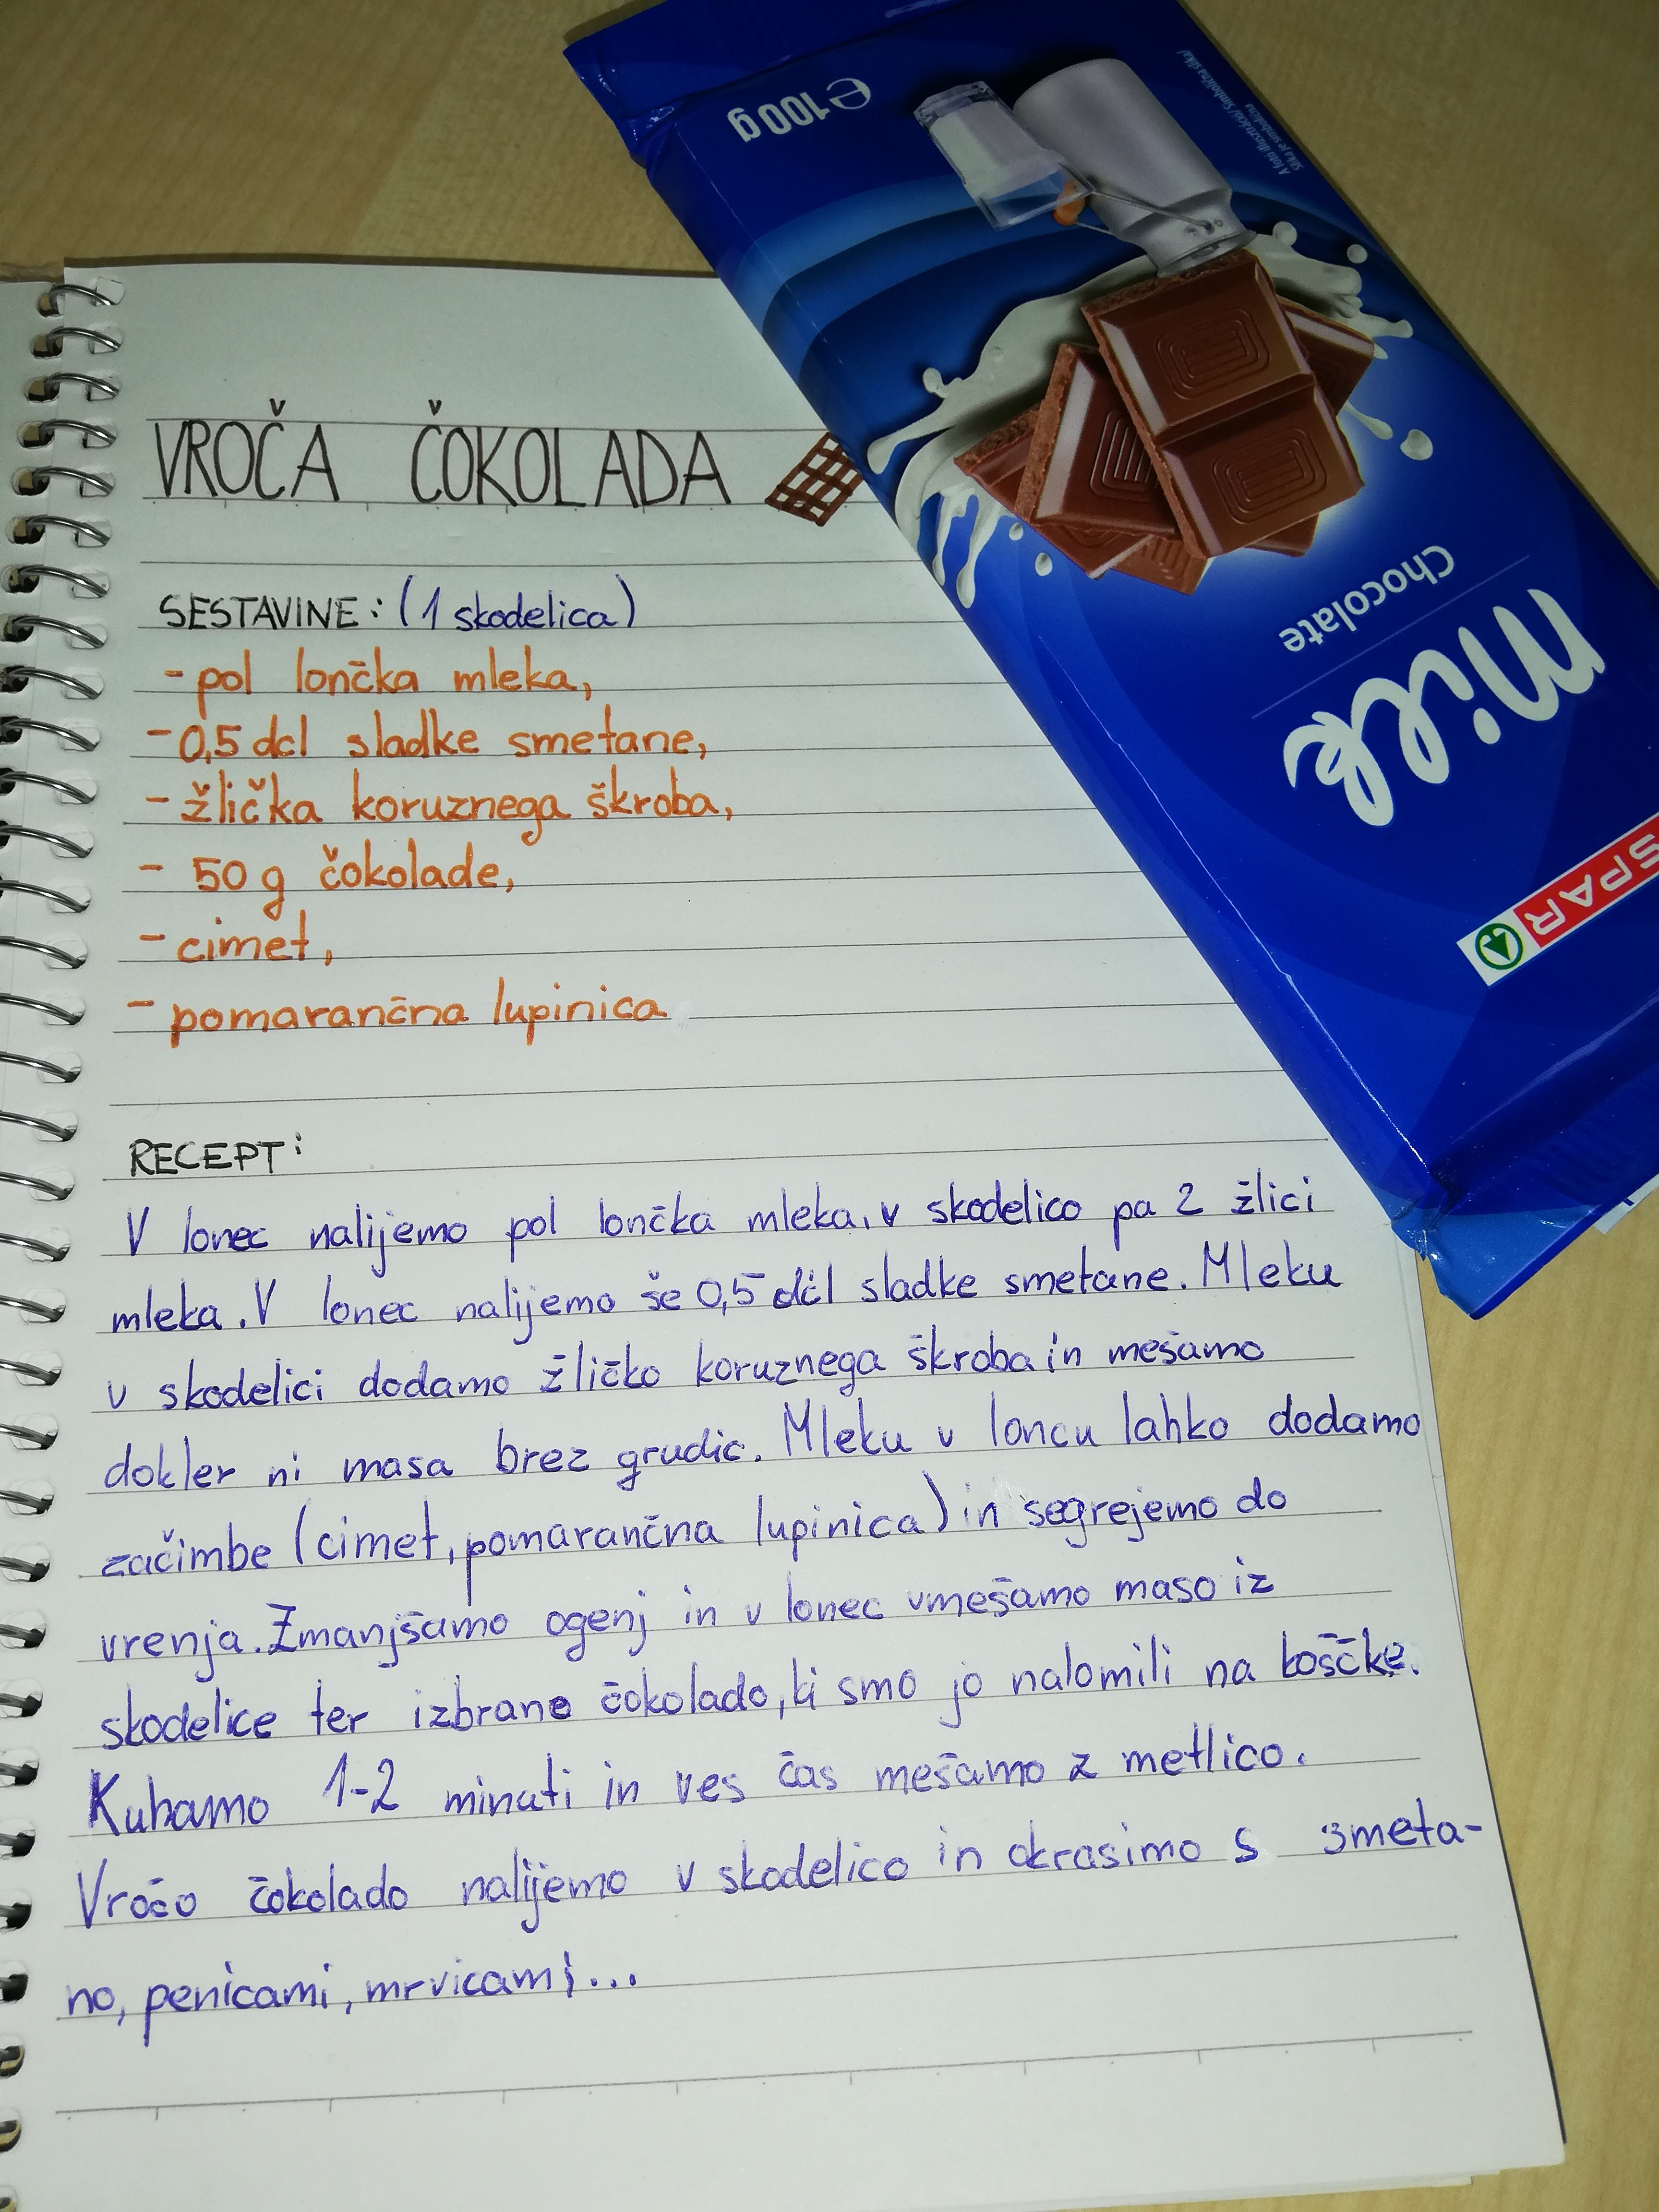 VROČA ČOKOLADA
SESTAVINE: (1 skodelica)
- pol lončka mleka,
- 0,5 dcl sladke smetane,
- žlička koruznega škroba,
- 50 g čokolade,
- cimet,
- pomarančna lupinica
RECEPT:
V lonec nalijemo pol lončka mleka, v skodelico pa 2 žlici
mleka. V lonec nalijemo še 0,5 dcl sladke smetane. Mleku
v skodelici dodamo žličko koruznega škroba in mešamo
dokler ni masa brez grudic. Mleku v loncu lahko dodamo
začimbe (cimet, pomarančna lupinica) in segrejemo do
vrenja. Zmanjšamo ogenj in v lonec vmešamo maso iz
skodelice ter izbrano čokolado, ki smo jo nalomili na koščke.
Kuhamo 1-2 minuti in ves čas mešamo z metlico.
Vročo čokolado nalijemo v skodelico in okrasimo s smeta-
no, penicami, mrvicami...
SPAR
Milk
Chocolate
℮ 100 g
A fotó illusztráció/ Simbolična slika/
Slika je simbolična